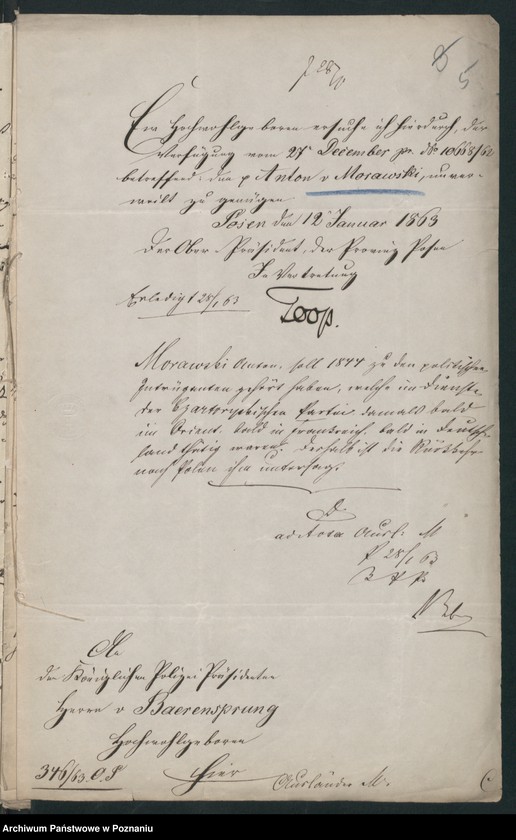 5
Ew Hochwohlgeboren ersuche ich hierdurch, der
Verfügung vom 27ᵗ December pr. No 10668/62
betreffend: den p Anton v Morawski, unver-
weilt zu genügen
Posen den 12 Januar 1863
Der Ober-Präsident, der Provinz Posen
In Vertretung
Erledigt 28/1 63
Toop.
Morawski Anton. soll 1844 zu den politischen
Intriguanten gehört haben, welche im Dienste
der Czartoryskischen Partei damals bald
im Orient bald in Frankreich, bald in Deutsch-
land thätig waren. Deshalb ist die Rückkehr
nach Polen ihm untersagt
ad Acta Ausl. M
28/1 63
An
den Königlichen Polizei Präsidenten
Herrn v Baerensprung
Hochwohlgeboren
hier
346/63. O.P
Ausländer M.
Archiwum Państwowe w Poznaniu